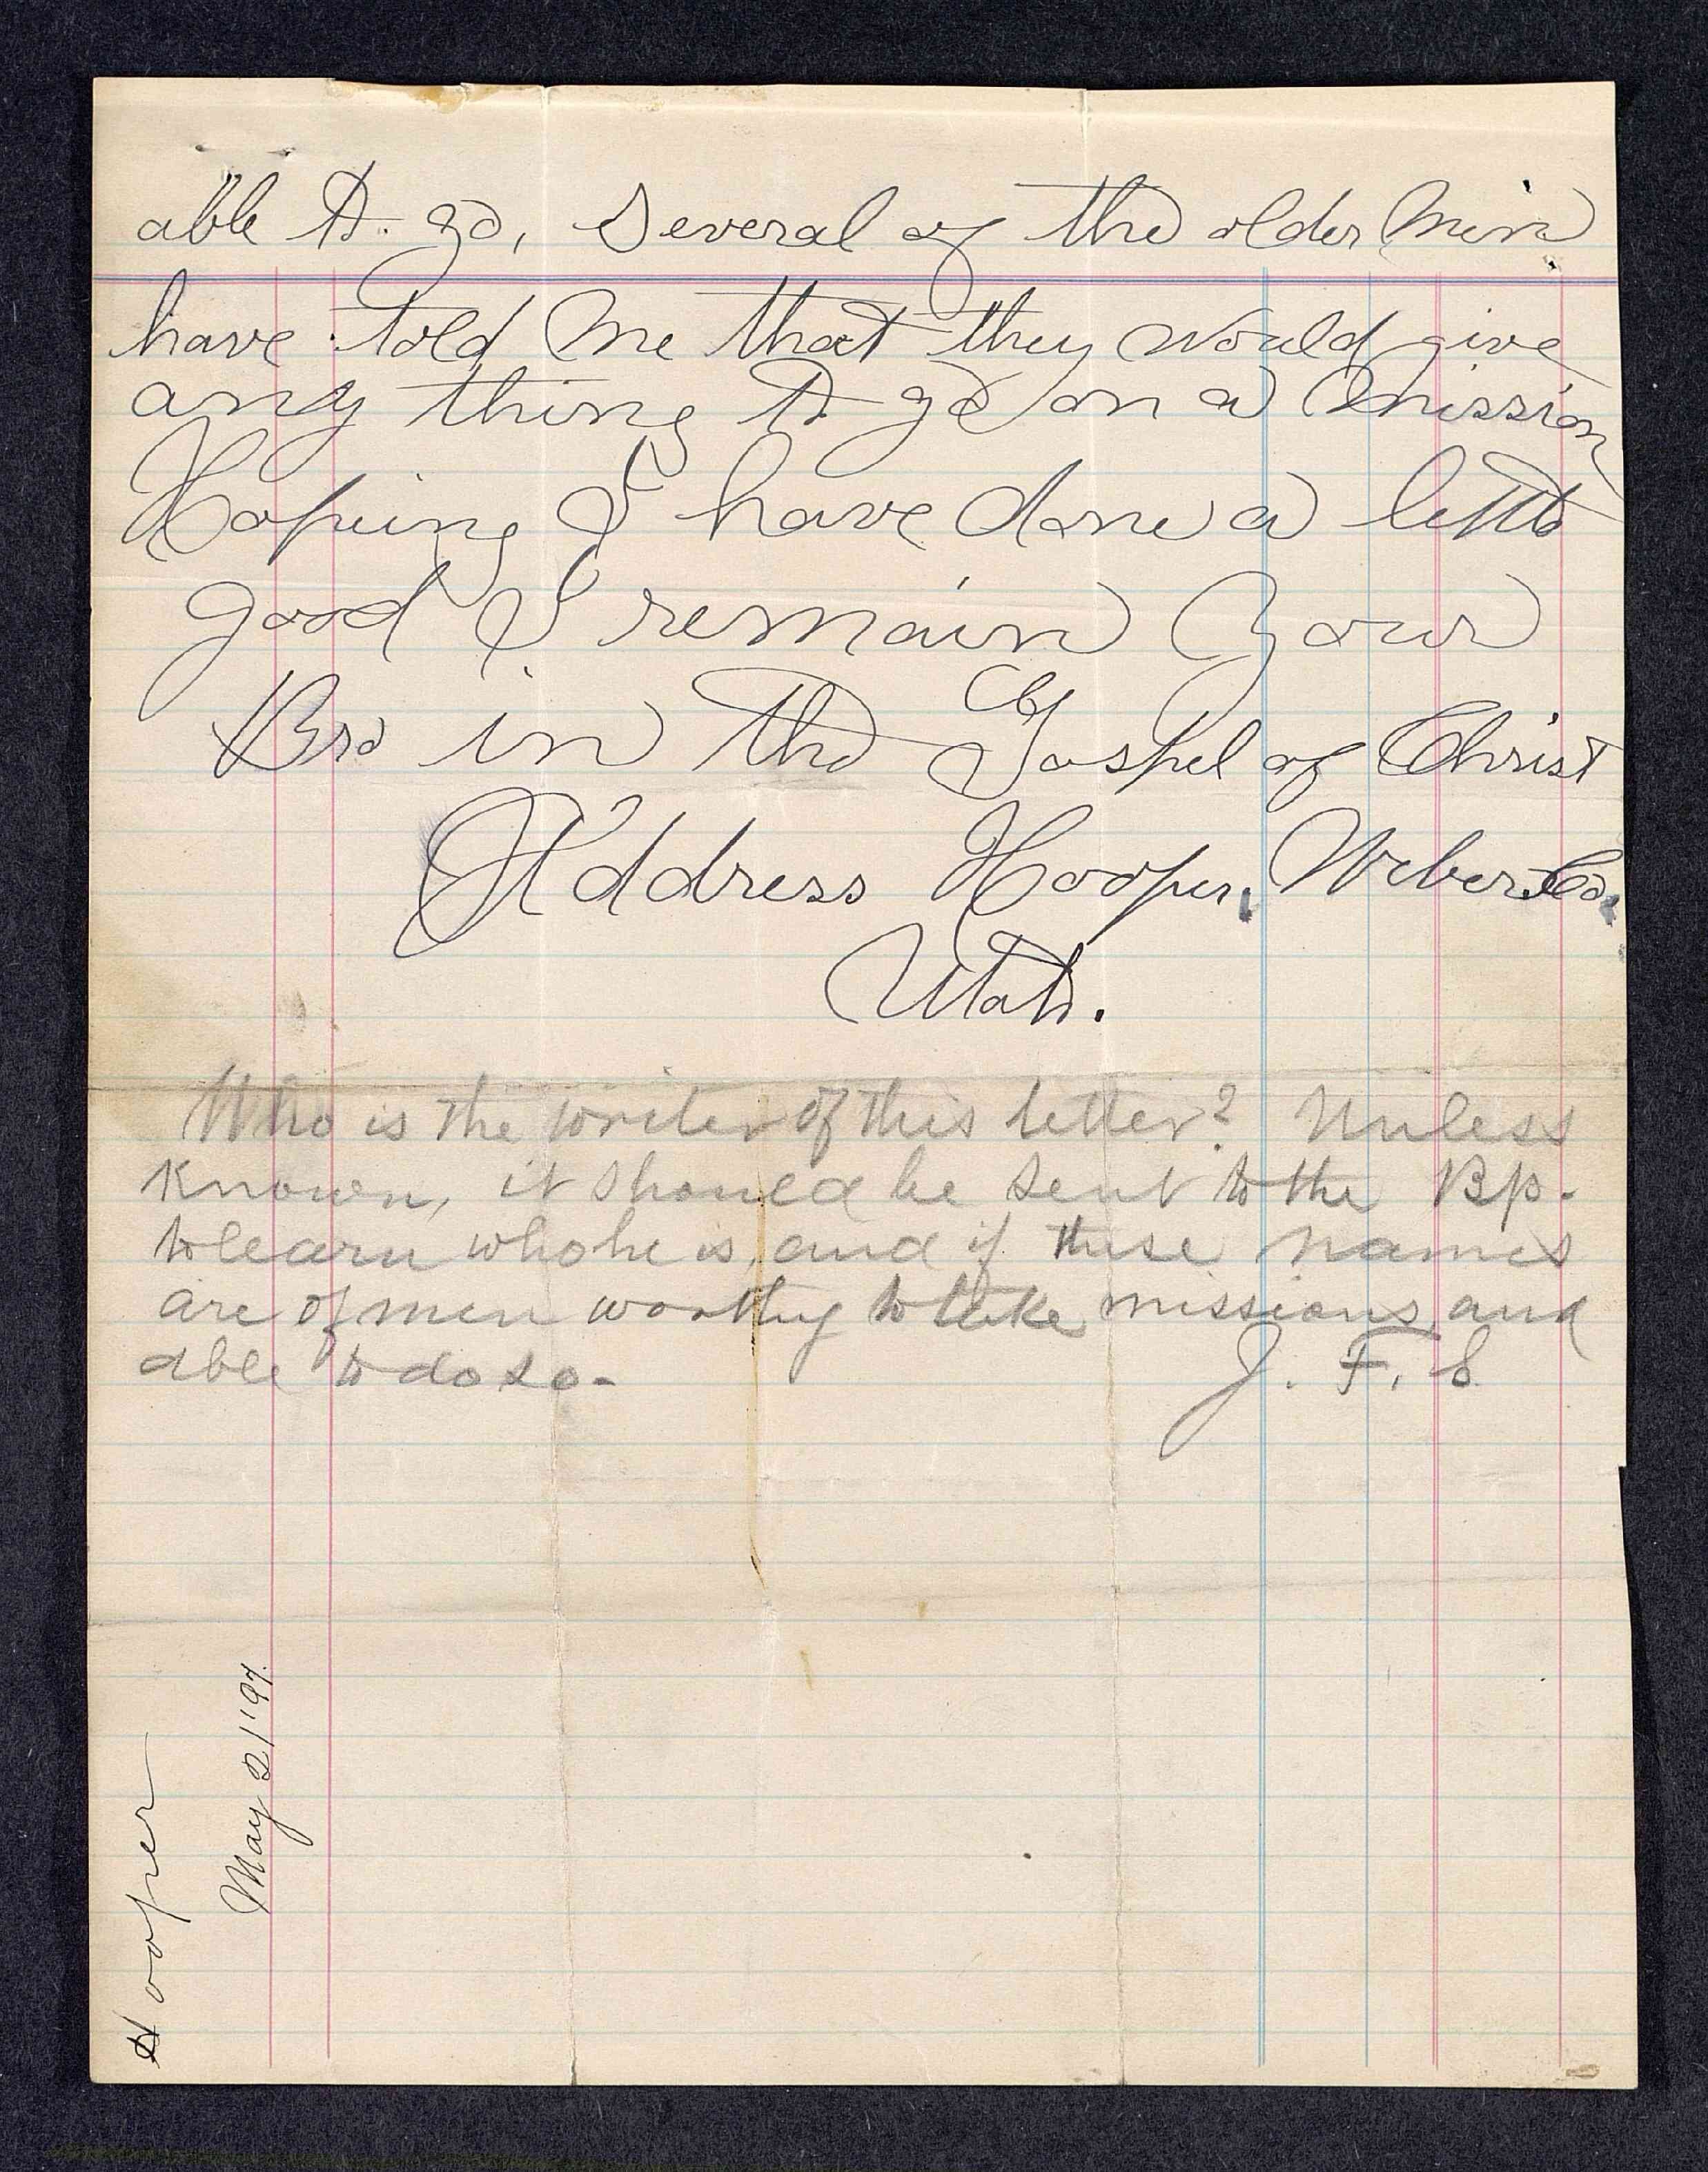 able to go, Several of the older Men
have told Me that they would give
any thing to go on a Mission
Hopeing I have done a little
good I remain Your
Bro in the Gospel of Christ
Address Hooper, Weber Co.
Utah.
Who is the writer of this letter? Unless
known, it should be sent to the Bp.
to learn who he is, and if these names
are of men worthy to take missions and
able to do so-
J. F. S.
Hooper
May 21 '97.